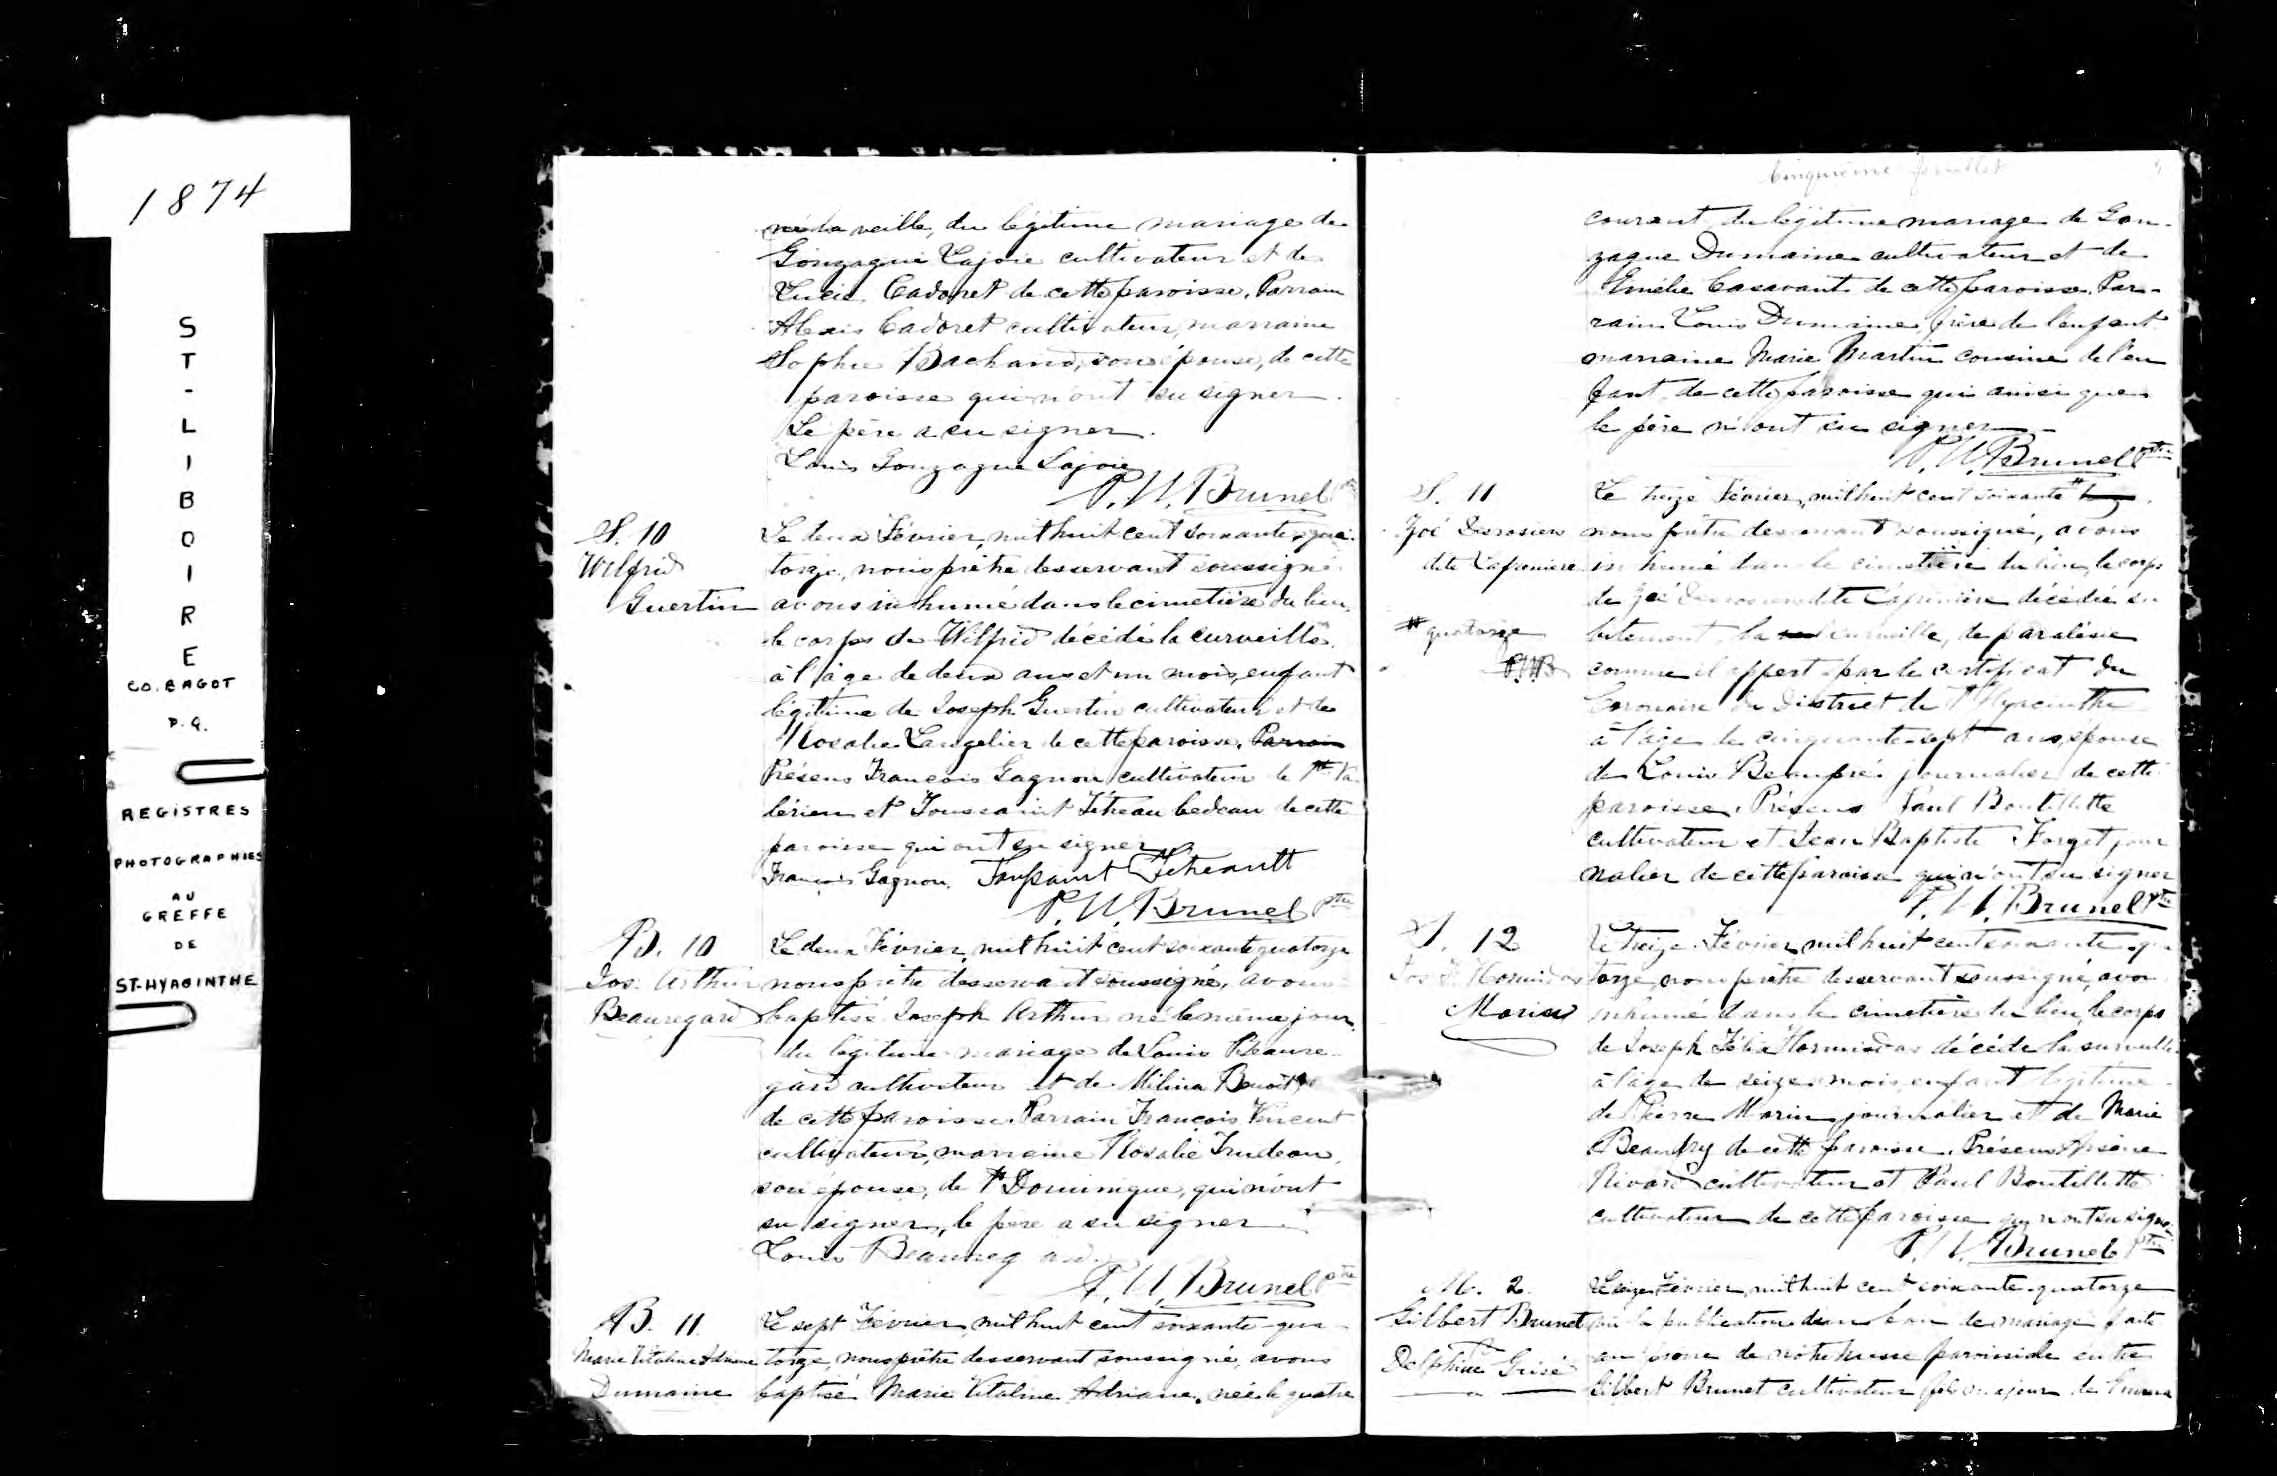 1874
ST-LIBOIRE
CO. BAGOT
P.Q.
REGISTRES
PHOTOGRAPHIES
AU
GREFFE
DE
ST-HYACINTHE
né la veille, du légitime mariage de
Gonzague Lajoie cultivateur et de
Lucie Cadoret de cette paroisse. Parrain
Alexis Cadoret cultivateur, marraine
Sophie Bachand, son épouse, de cette
paroisse qui n'ont su signer.
Le père a su signer.
Louis Gonzague Lajoie
P. U. Brunel ptre
S. 10
Wilfrid
Guertin
Le deux Février, mil huit cent soixante-qua-
torze, nous prêtre desservant soussigné
avons inhumé dans le cimetière du lieu,
le corps de Wilfrid décédé la surveille,
à l'âge de deux ans et un mois, enfant
légitime de Joseph Guertin cultivateur et de
Rosalie Langelier de cette paroisse. Parrain
Présens François Gagnon cultivateur de St Va-
lérien et Toussaint Téteau bedeau de cette
paroisse qui ont su signer
François Gagnon. Toussaint Scheault
P. U. Brunel ptre
B. 10
Jos. Arthur
Beauregard
Le deux Février, mil huit cent soixante quatorze
nous prêtre desservant soussigné, avons
baptisé Joseph Arthur né le même jour,
du légitime mariage de Louis Beaure-
gard cultivateur et de Mélina Benoit
de cette paroisse. Parrain François Vincent
cultivateur, marraine Rosalie Trudeau,
son épouse, de St Dominique, qui n'ont
su signer, le père a su signer
Louis Beauregard
P. U. Brunel ptre
B. 11.
Marie Vitaline Adriane
Dumaine
Le sept Février, mil huit cent soixante-qua-
torze, nous prêtre desservant soussigné, avons
baptisé Marie Vitaline Adriane, née le quatre
Cinquième feuillet
courant du légitime mariage de Gon-
zague Dumaine cultivateur et de
Emélie Casavant de cette paroisse. Par-
rain Louis Dumaine, frère de l'enfant
marraine Marie Martin cousine de l'en
fant, de cette paroisse qui ainsi que
le père n'ont su signer
P. U. Brunel ptre
S. 11
Zoé Desrosiers
dite Lafrenière
# quatorze
PUB
Le treize Février, mil huit cent soixante #
nous prêtre desservant soussigné, avons
inhumé dans le cimetière du lieu, le corps
de Zoé Desrosiers dite Lafrenière décédée su
bitement, la surveille, de paralésie
comme il appert par le certificat du
Coronaire du District de St Hyacinthe
à l'âge de cinquante-sept ans, épouse
de Louis Beaupré journalier de cette
paroisse. Présens Paul Boutillette
cultivateur et Jean Baptiste Forget jour
nalier de cette paroisse qui n'ont su signer
P. U. Brunel ptre
S. 12
Jos F. Hormisdas
Morin
Le treize Février, mil huit cent soixante-qua
torze, nous prêtre desservant soussigné, avons
inhumé dans le cimetière du lieu, le corps
de Joseph Félix Hormisdas décédé la surveille
à l'âge de seize mois, enfant légitime
de Pierre Morin journalier et de Marie
Beaudry de cette paroisse. Présens Arsène
Rivard cultivateur et Paul Boutillette
cultivateur de cette paroisse qui n'ont su signer
P. U. Brunel ptre
M. 2.
Gilbert Brunet
&
Delphine Grisé
Le seize Février, mil huit cent soixante-quatorze
vu la publication d'un ban de mariage faite
au prone de nôtre messe paroissiale entre
Gilbert Brunet cultivateur fils majeur de